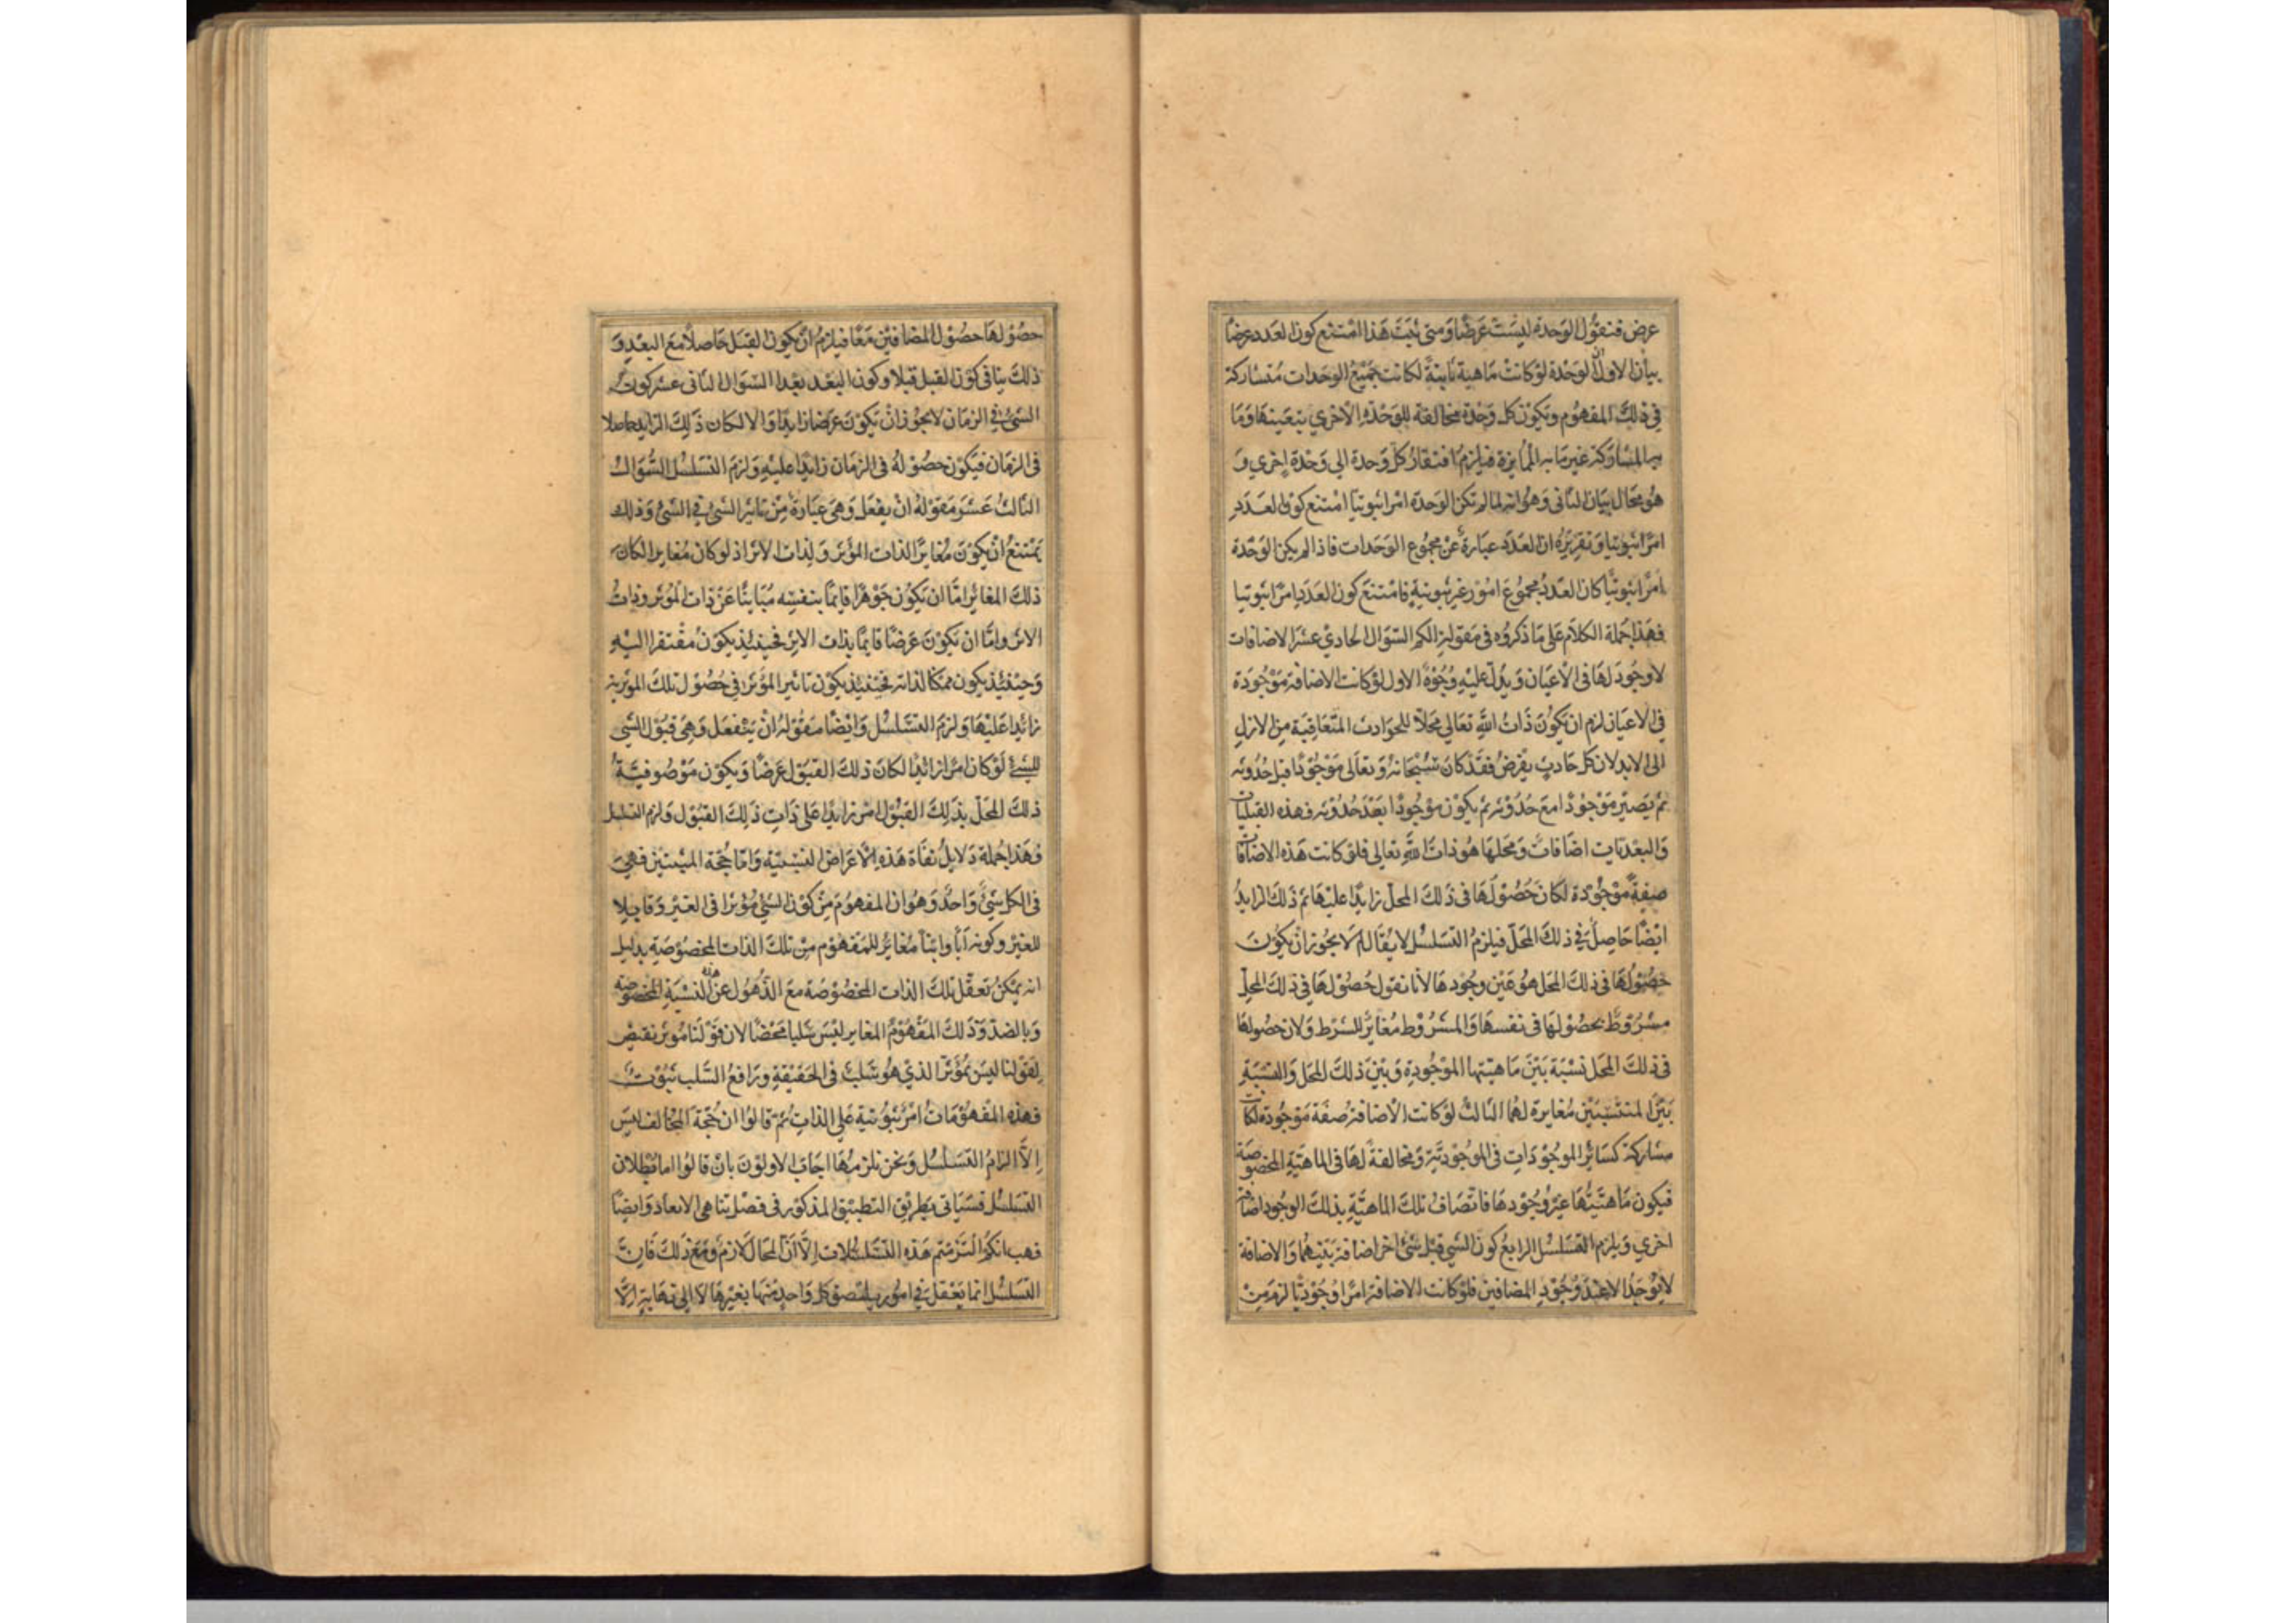 عرض فنقول الوحدة ليست عرضا ومتى ثبت هذا امتنع كون العدد عرضا
بيان الاول ان الوحدة لو كانت ماهية ثابتة لكانت جميع الوحدات متشاركة
في ذلك المفهوم وتكون كل وحدة مخالفة للوحدة الاخري بتعينها وما
به المشاركة غير ما به الممايزة فيلزم افتقار كل وحدة الي وحدة اخري و
هو محال بيان الثاني وهو انه لما لم تكن الوحدة امرا ثبوتيا امتنع كون العدد
امرا ثبوتيا وتقريره ان العدد عبارة عن مجموع الوحدات فاذا لم يكن الوحدة
امرا ثبوتيا كان العدد مجموع امور غير ثبوتية فامتنع كون العدد امرا ثبوتيا
فهذا جملة الكلام على ما ذكروه في مقولة الكم السؤال الحادي عشر الاضافات
لا وجود لها في الاعيان ويدل عليه وجوه الاول لو كانت الاضافة موجودة
في الاعيان لزم ان يكون ذات الله تعالي محلا للحوادث المتعاقبة من الازل
الى الابد لان كل حادث يفرض فقد كان سبحانه وتعالى موجودا قبل حدوثه
ثم يصير موجودا مع حدوثه ثم يكون موجودا بعد حدوثه فهذه القبليات
والبعديات اضافات ومحلها هو ذات الله تعالي فلو كانت هذه الاضافات
صفة موجودة لكان حصولها في ذلك المحل زايدا عليها ثم ذلك الزايد
ايضا حاصل في ذلك المحل فيلزم التسلسل لا يقال لم لا يجوز ان يكون
حصولها في ذلك المحل هو عين وجودها لانا نقول حصولها في ذلك المحل
مشروط بحصولها في نفسها والمشروط مغاير للشرط ولان حصولها
في ذلك المحل نسبة بين ماهيتها الموجودة وبين ذلك المحل والنسبة
بين المنتسبين مغايرة لهما الثالث لو كانت الاضافة صفة موجودة لكانت
مشاركة كسائر الموجودات في الموجودية ومخالفة لها في الماهية المخصوصة
فيكون ماهيتها غير وجودها فاتصاف تلك الماهية بذلك الوجود اضافة
اخري ويلزم التسلسل الرابع كون الشي قبل شئ اخر اضافة بينهما والاضافة
لا يوجد الا عند وجود المضافين فلو كانت الاضافة امرا وجوديا لزم من
حصولها حصول المضافين معا فيلزم ان يكون القبل حاصلا مع البعد و
ذلك ينافي كون القبل قبلا وكون البعد بعدا السؤال الثاني عشر كون
الشئ في الزمان لا يجوز ان يكون عرضا زايدا والا لكان ذلك الزايد حاصلا
في الزمان فيكون حصوله في الزمان زايدا عليه ولزم التسلسل السؤال
الثالث عشر مقولة ان يفعل وهي عبارة من تاثير الشئ في الشئ وذلك
يمتنع ان يكون مغايرا لذات المؤثر ولذات الاثر اذ لو كان مغايرا لكان
ذلك المغاير اما ان يكون جوهرا قائما بنفسه مباينا عن ذات المؤثر وذات
الاثر واما ان يكون عرضا قايما بذات الاثر فحينئذ يكون مفتقرا اليه
وحينئذ يكون ممكنا لذاته فحينئذ يكون تاثير المؤثر في حصول تلك المؤثرية
زائدا عليها ولزم التسلسل وايضا مقولة ان ينفعل وهي قبول الشي
للشئ لو كان امرا زائدا لكان ذلك القبول عرضا ويكون موصوفية
ذلك المحل بذلك القبول امر زايدا على ذات ذلك القبول ولزم التسلسل
وهذا جملة دلايل نفاة هذه الاعراض النسبية واما حجة المثبتين فهي
في الكل شئ واحد وهو ان المفهوم من كون الشئ مؤثرا في الغير وقابلا
للغير وكونه ابا وابنا مغاير للمفهوم من تلك الذات المخصوصة بدليل
انه يمكن تعقل تلك الذات المخصوصة مع الذهول عن هذه النسبة المخصوصة
وبالضد وذلك المفهوم المغاير ليس سلبا محضا لان قولنا مؤثر نقيض
لقولنا ليس بمؤثر الذي هو سلب في الحقيقة ورافع السلب ثبوت
فهذه المفهومات امر ثبوتية علي الذات ثم قالوا ان حجة المخالف ليس
الا الزام التسلسل ونحن نلزمها اجاب الاولون بان قالوا اما بطلان
التسلسل فسياتي بطريق التطبيق المذكور في فصل تناهي الابعاد وايضا
فهب انكم التزمتم هذه التسلسلات الا ان المحال لازم ومع ذلك فان
التسلسل انما يعقل في امور يلتصق كل واحد منها بغيرها لا الى نهاية الا